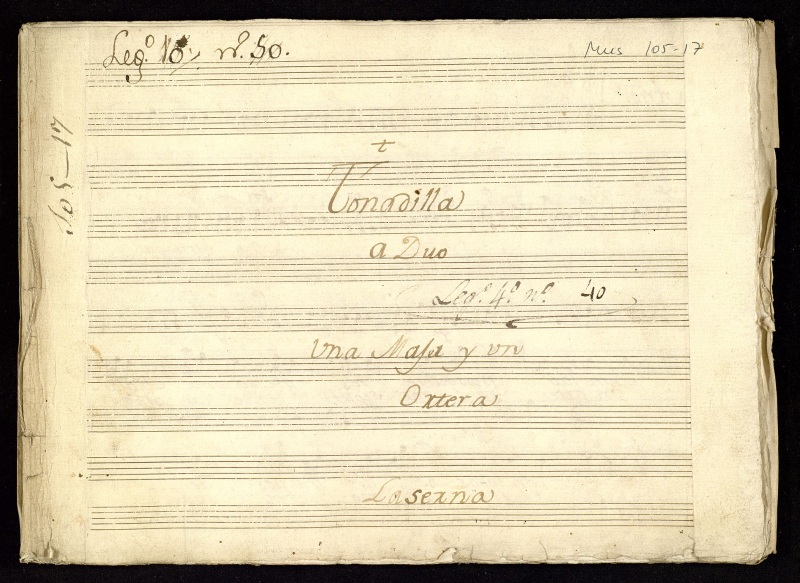 Leg.º 10, nº. 50.
Mus 105-17
105-17
Tonadilla
a Duo
Leg.º 4.º nº. 40
Vna Maja y vn
Oxtera
Laserna